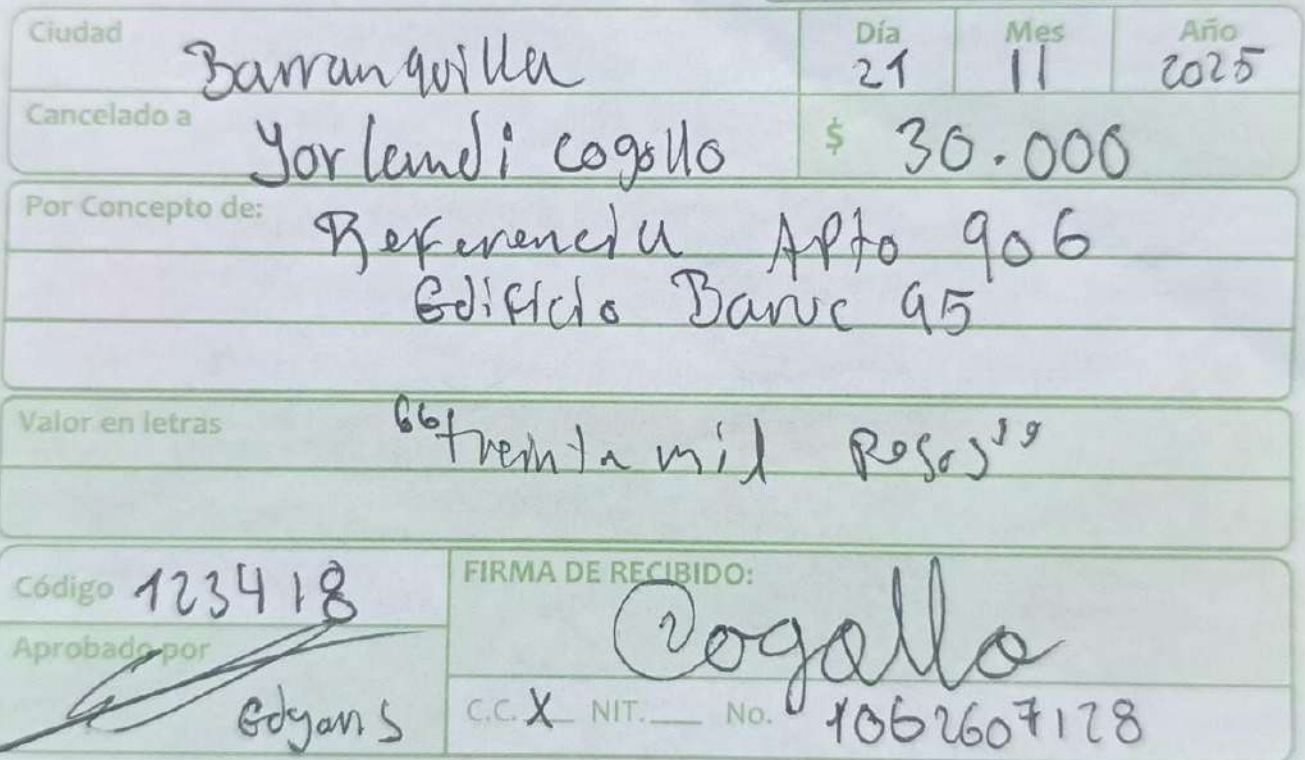 Ciudad Barranquilla
Día 21 Mes 11 Año 2025
Cancelado a Yorlandi cogollo $ 30.000
Por Concepto de: Referencia Apto 906
Edificio Baruc 95
Valor en letras "treinta mil Pesos"
Código 123418
Aprobado por
Edgar S
FIRMA DE RECIBIDO: Cogollo
C.C. X NIT. No. 1062607128